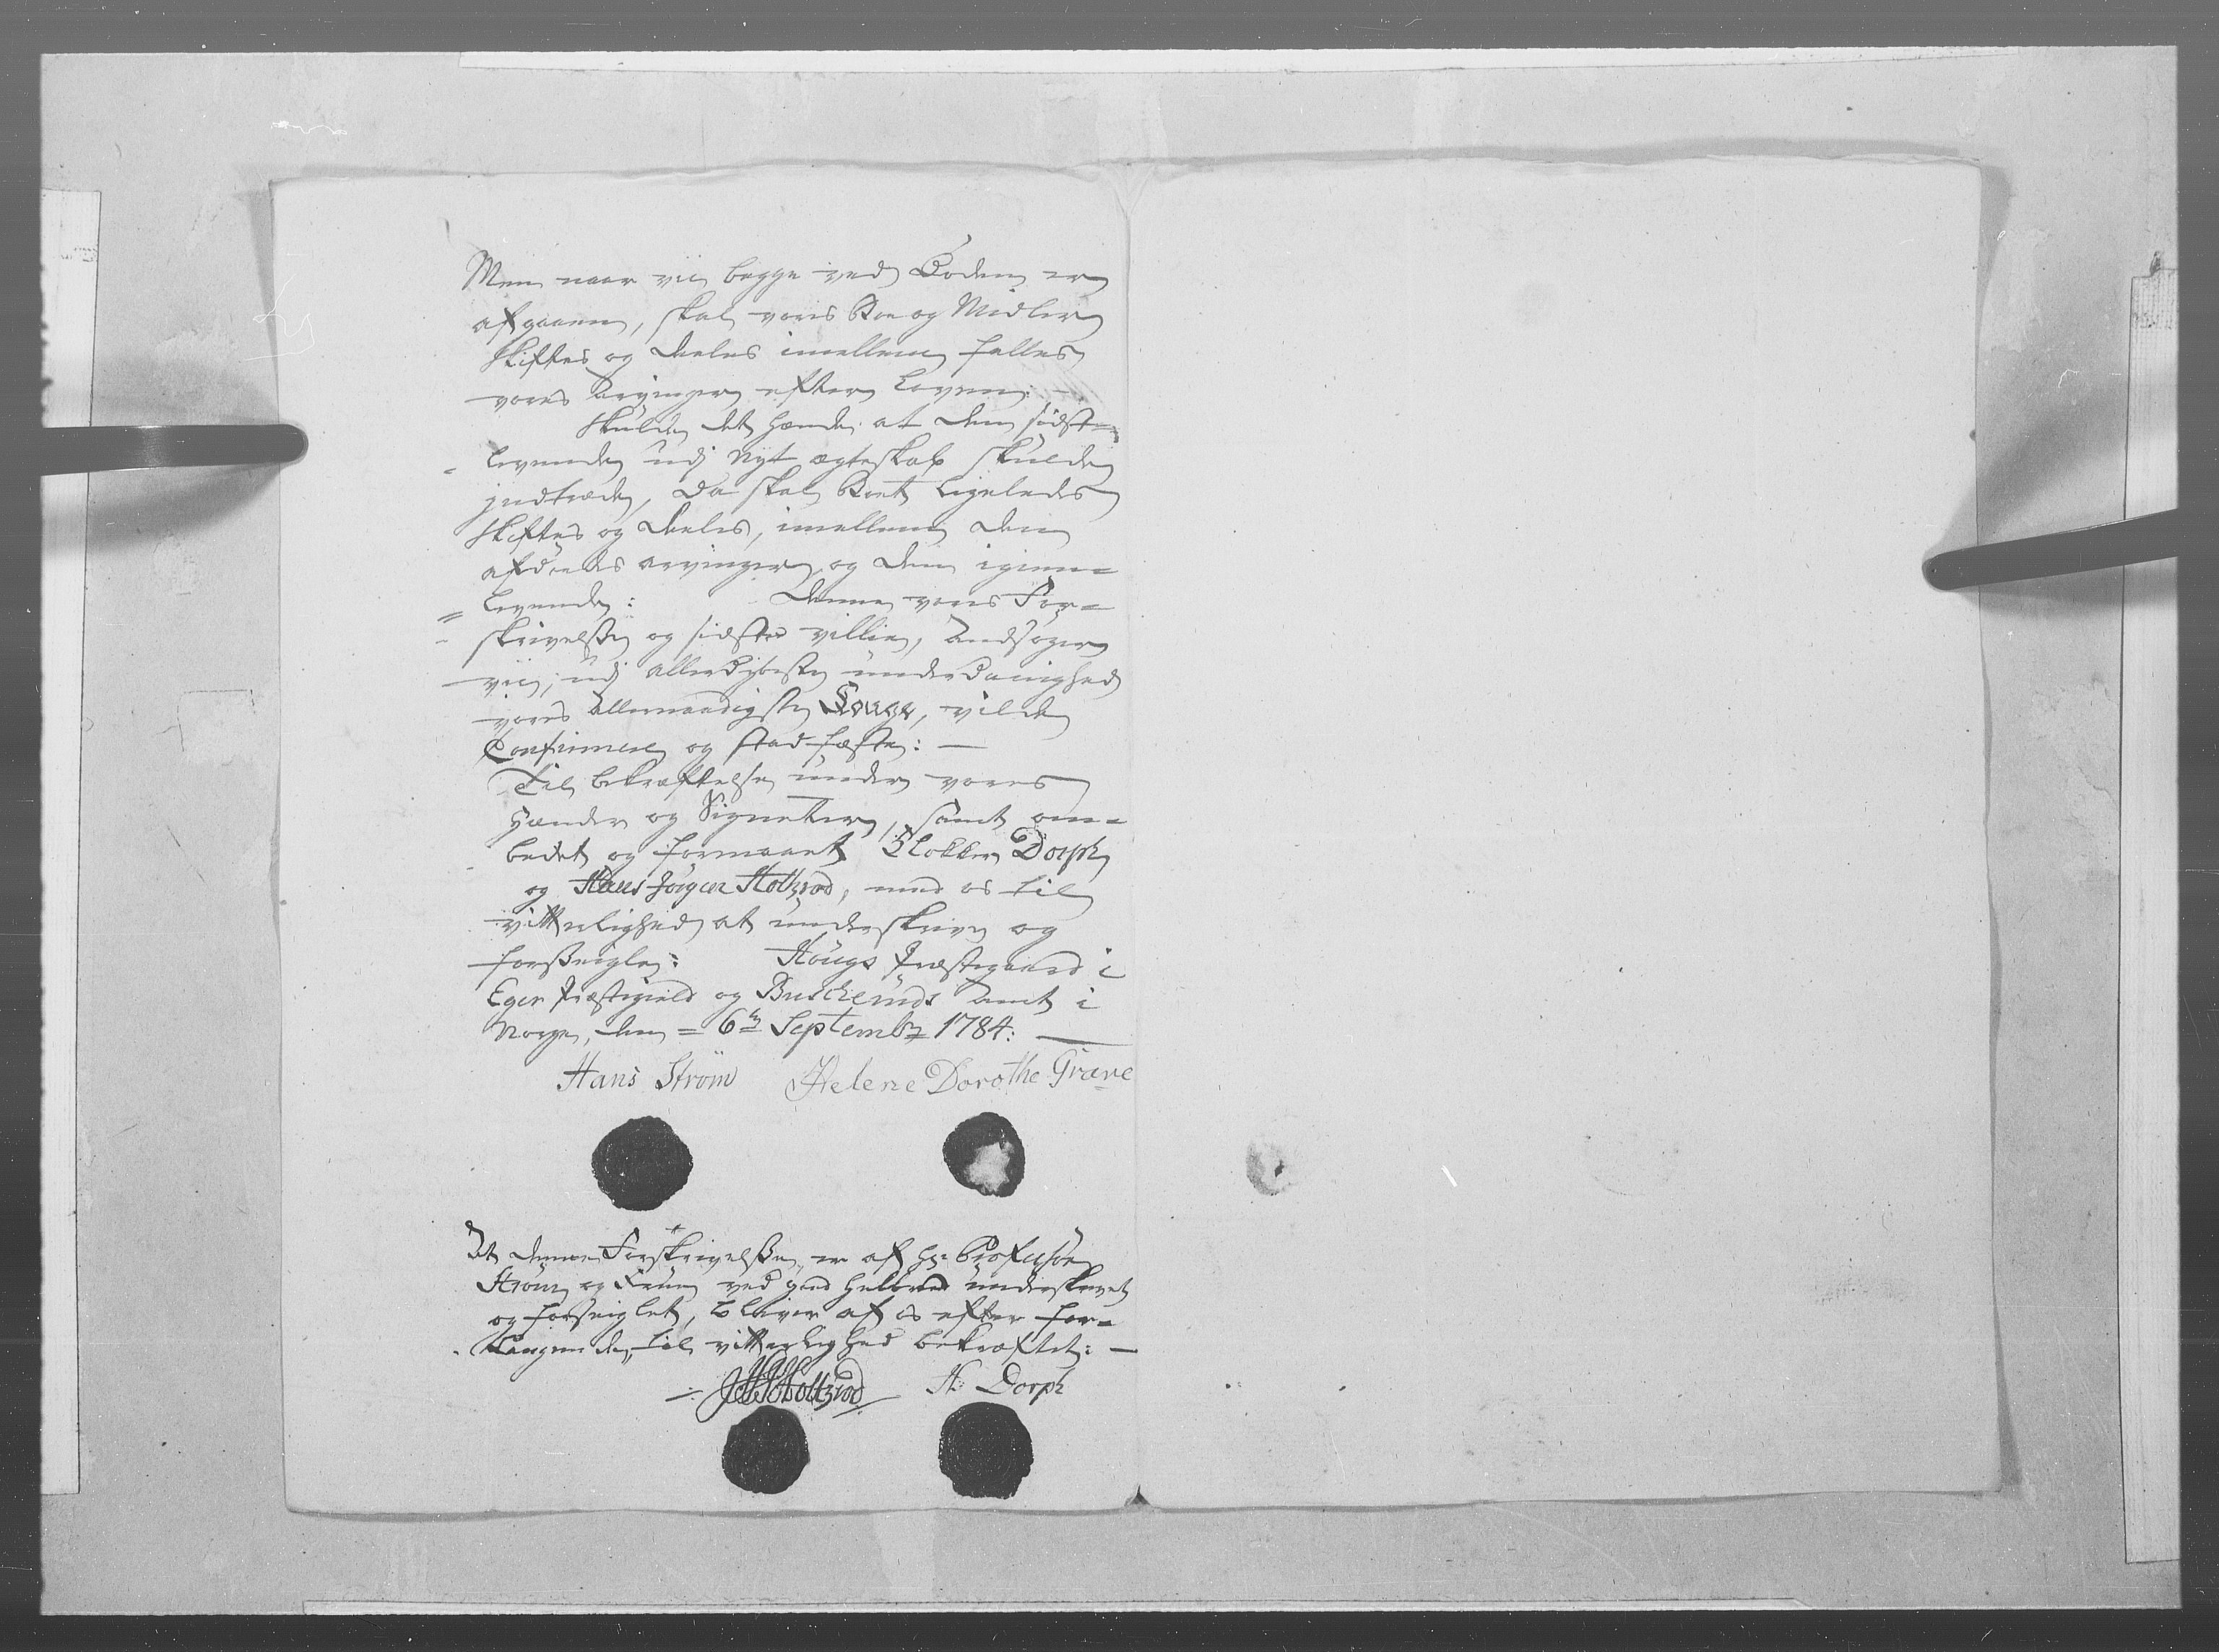 Men naar vii begge ved Døden er
afgaaen, skal vores Boe og Midler
skiftes og deeles imellem fælles
vores Arvinger efter Loven:
Skulde det hænde at den sidst-
levende udj nyt ægteskab skulde
jndtræde, da skal Boet ligeleds
skiftes og deeles, imellem den
afdøeds arvinger og den igien=
levende: Denne vores For=
skrivelsse og sidste villie, andsøger
vii, udj allerdybeste underdanighed
vores allernaadigste Konge, vilde
Confirmere og stadfæste: —
Til bekræftelse under vores
Hænder og Signeter, samt om=
bedet og formaaet Klokker Dorph
og Hans Jørgen Holtzrod, med os til
vitterlighed at underskrive og
forsseigle: Hougs Præstegaard i
Eger Præstegield og Buscheruds Amt i
Norge, den = 6te Septembr 1784: —
Hans Strøm Helene Dorothe Græve
At denne Forskrivelsse, er af Hr: Professor
Strøm og Frue ved god Helbred underskrevet
og forseiglet, bliver af os efter for=
langende, til vitterlighed bekræftet: —
HJHoltzrod H: Dorph